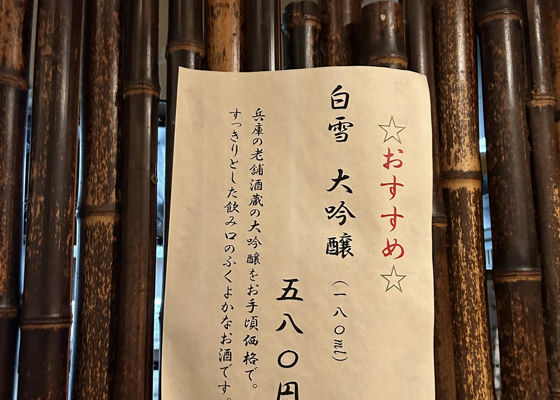 ☆おすすめ☆
白雪 大吟醸(一八〇ml)
五八〇円
兵庫の老舗酒蔵の大吟醸をお手頃価格で。
すっきりとした飲み口のふくよかなお酒です。